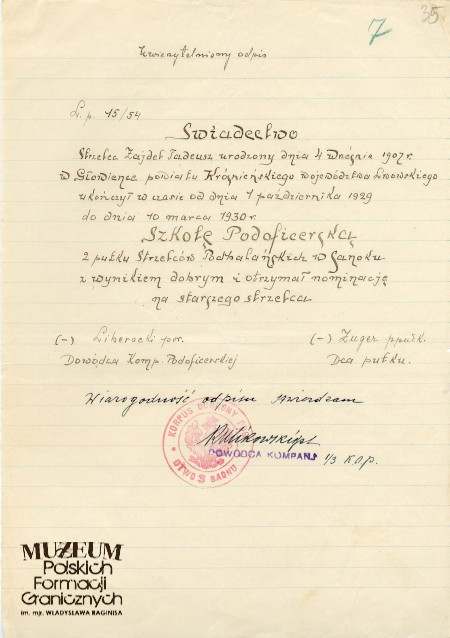 7 35
Uwierzytelniony odpis
L. p. 15/54
Świadectwo
Strzelec Zajdel Tadeusz urodzony dnia 4 września 1907 r.
w powiatu Krośnieńskiego województwa Lwowskiego
ukończył w czasie od dnia 1 października 1929
do dnia 10 marca 1930 r.
Szkołę Podoficerską
2 pułku Strzelców Podhalańskich w Sanoku
z wynikiem dobrym i otrzymał nominację
na starszego strzelca
(-) Liberacki por. (-) Zuger ppułk.
Dowódca Komp. Podoficerskiej Dca pułku.
Wiarogodność odpisu stwierdzam
KORPUS OCHRONY
DOWÓDCA KOMPANJI 1/3 K.O.P.
MUZEUM
Polskich
Formacji
Granicznych
im. mjr. WŁADYSŁAWA RAGINISA